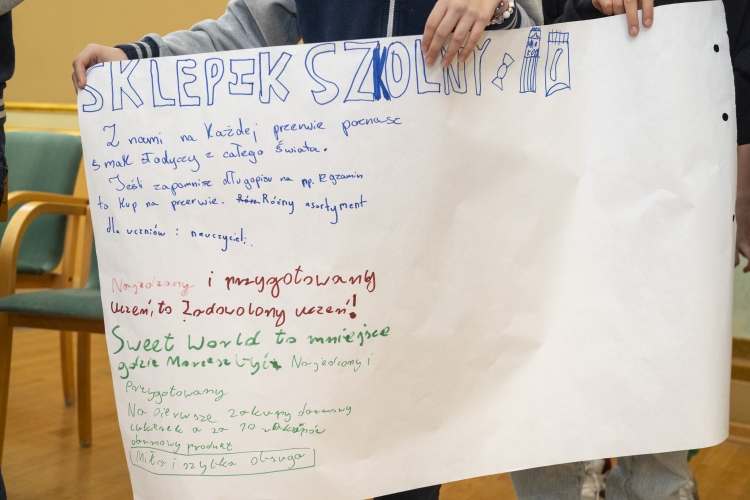 SKLEPIK SZKOLNY
Z nami na każdej przerwie poznasz
smak słodyczy z całego świata.
Jeśli zapomnisz długopisu na np. Egzamin
to kup na przerwie. Różny asortyment
dla uczniów i nauczycieli.
Najedzony i przygotowany
uczeń, to Zadowolony uczeń!
Sweet World to mniejsce
gdzie Marzesz być Najedzony i
Przygotowany
Na pierwsze zakupy darmowy
cukierek a za 10 zakupów
darmowy produkt
Miła i szybka obsługa